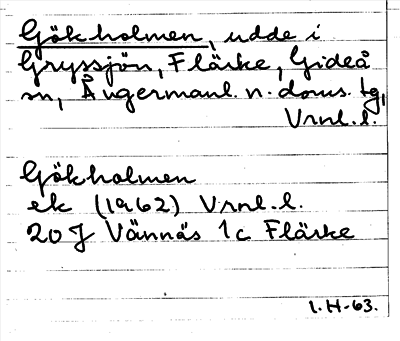 Gökholmen, udde i
Gryssjön, Flärke, Gideå
sn, Ångermanl. n. doms. tg,
Vrnl. l.
Gökholmen
ek (1962) Vrnl. l.
20 J Vännäs 1c Flärke
I. H-63.